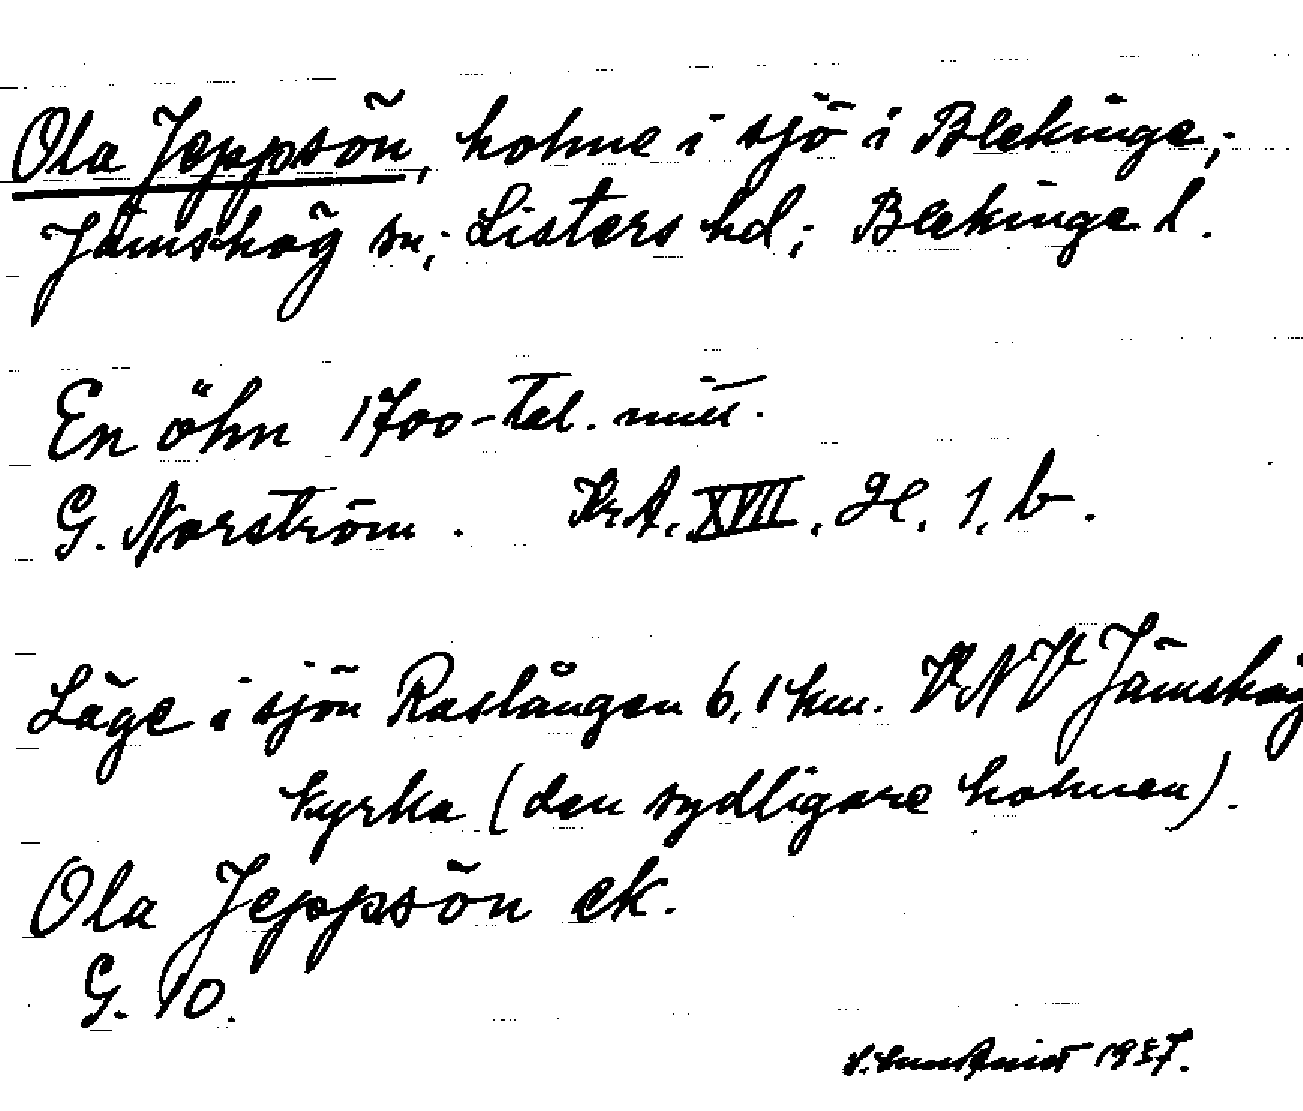 Ola Jeppsön, holme i sjö i Blekinge,
Jämshög sn; Listers hd; Blekinge l.
En öhn 1700-tal. mitt.
G. Norström. KrA. XVII. H. 1, b.
Läge i sjön Raslången 6,1 km. VNV Jämshög
kyrka (den sydligare holmen).
Ola Jeppsön ek.
G. 10.
1937.